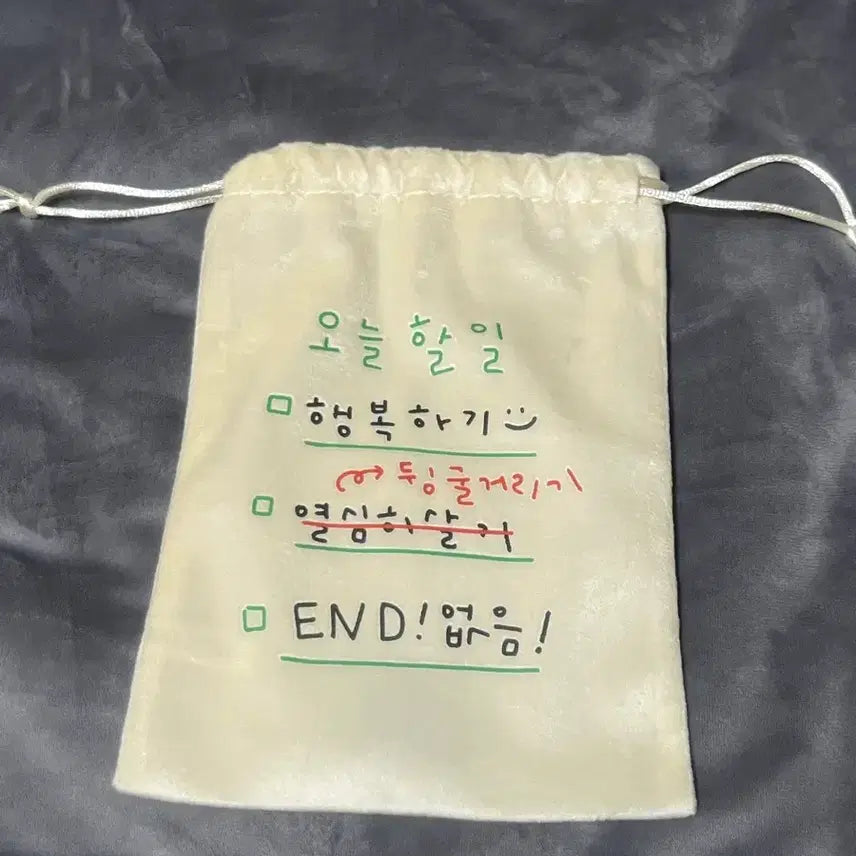 오늘 할 일
행복하기
뒹굴거리기
열심히살기
END! 없음!